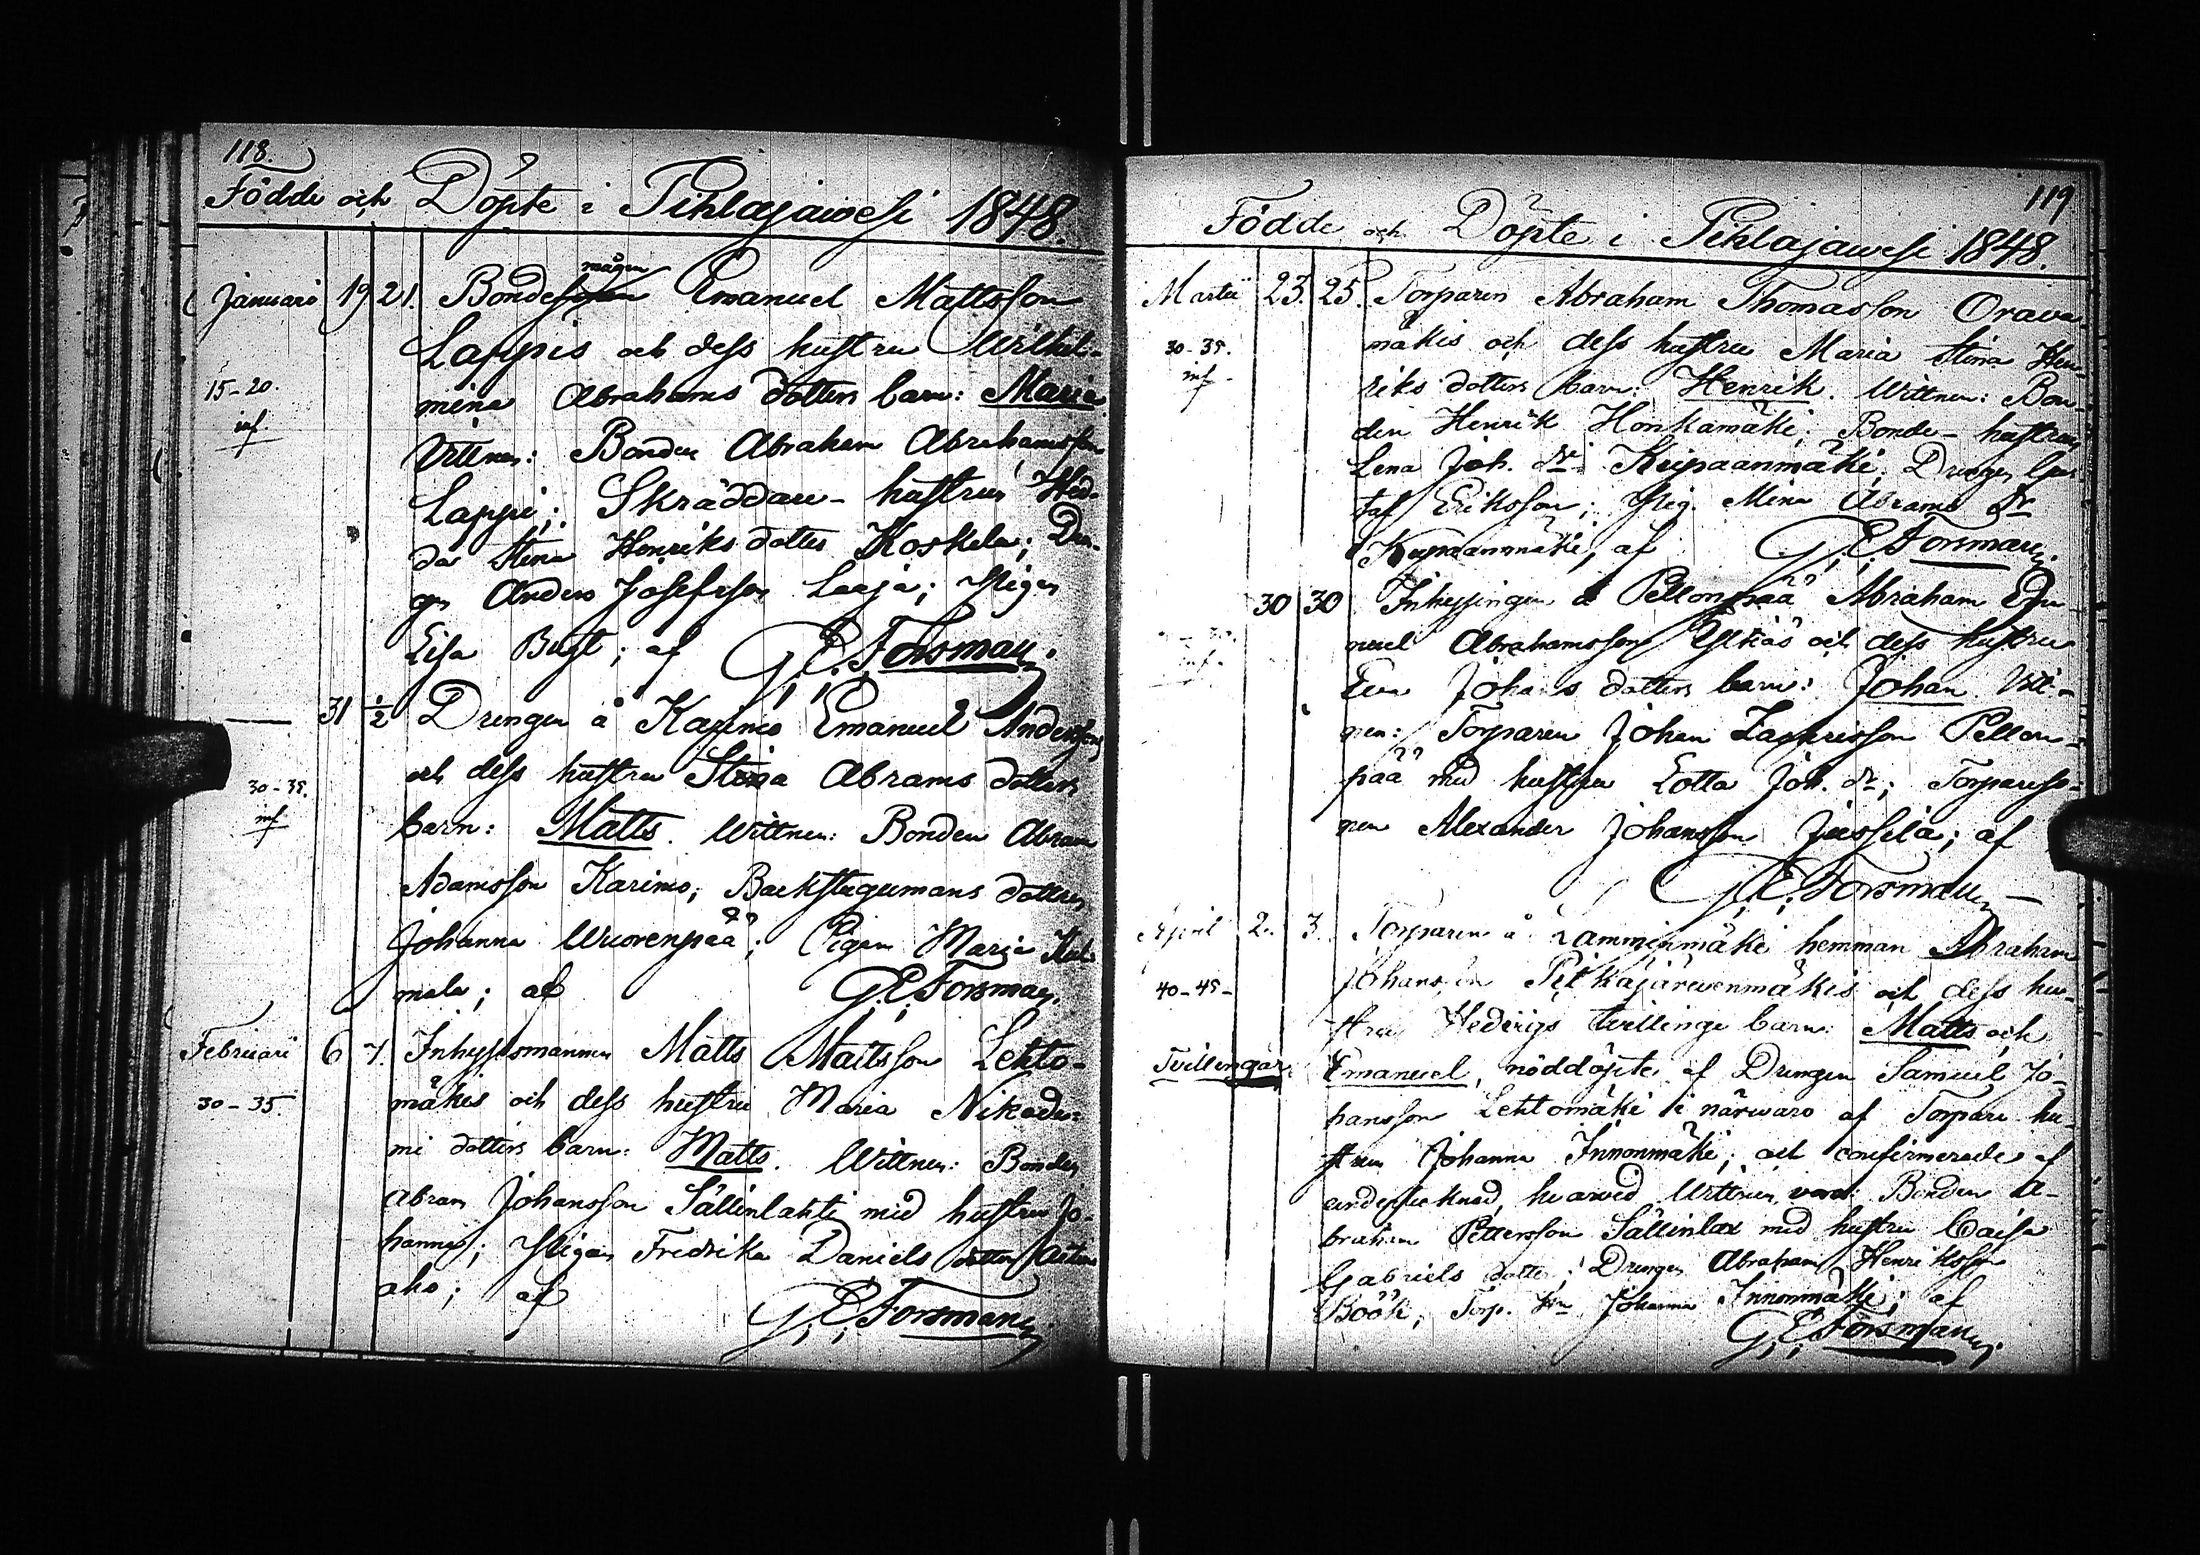 118.
Födde och Döpte i Pihlajawesi 1848.
Januarii 19 21. Bondes mågen Emanuel Mattsson
Lappis och dess hustru Wilhel-
15-20. mina Abrahams dotters barn: Maria
inf. Vittnen: Bonden Abraham Abrahamsson
Lappi; Skräddare-hustrun Hed-
da Stina Henriks dotter Koskela; Drän-
gen Anders Josefsson Laaja; Pigan
Lisa ; af G. E. Forsman.
31 1/2 Drengen å Karimo Emanuel Andersons
och dess hustru Stina Abrams dotters
30-35. inf barn: Matts. Wittnen: Bonden Abram
Adamsson Karimo; Backstugumans dottren
Johanna Wuorenpää; Pigan Maria Kal-
mala; af G. E. Forsman.
Februari 6 7. Inhyssmannen Matts Mattsson Lehto-
30-35. mäkis och dess hustru Maria Nikode-
mi dotters barn: Matts. Wittnen: Bonden
Abram Johansson Sällinlahti med hustru Jo-
hanna; Pigan Fredrika Daniels dotter
aho; af G. E. Forsman.
119
Födde och Döpte i Pihlajawesi 1848.
Martii 23. 25. Torparen Abraham Thomasson Orava-
30-35. mäkis och dess hustru Maria Stina Hen-
inf riks dotters barn: Henrik. Wittnen: Bon-
den Henrik Honkamäki; Bonde-hustrun
Lena Joh. dr Keipaanmäki; Drengen Gus-
taf Eriksson; Pig. Mina Abrams Dr
Keipaanmäki; af G. E. Forsman.
30 30 Inhysingen å Pellonpää Abraham Ema-
nuel Abrahamsson och dess hustru
inf. Eva Johans dotters barn: Johan. Vitt-
nen: Torparen Johan Zachrisson Pellon-
pää med hustru Lotta Joh. dr; Torpareso-
nen Alexander Johansson Jussila; af
G. E. Forsman
April 2. 3. Torparen å Lamminmäki hemman Abraham
40-45- Johansson Pitkäjärwenmäkis och dess hu-
stru Hedvigs tvillinge barn: Matts och
Tvillingar. Emanuel, nöddöpte af Drengen Samuel Jo-
hansson Lehtomäki i närwaro af Torpare hu-
strun Johanna Innonmäki; och confirmerade af
undertecknad, hvarvid Wittnen voro: Bonden A-
braham Pettersson Sällinlax med hustru Caisa
Gabriels dotter; Drengen Abraham Henriksson
Böök; Torp. Hn Johanna Innonmäki; af
G. E. Forsman.